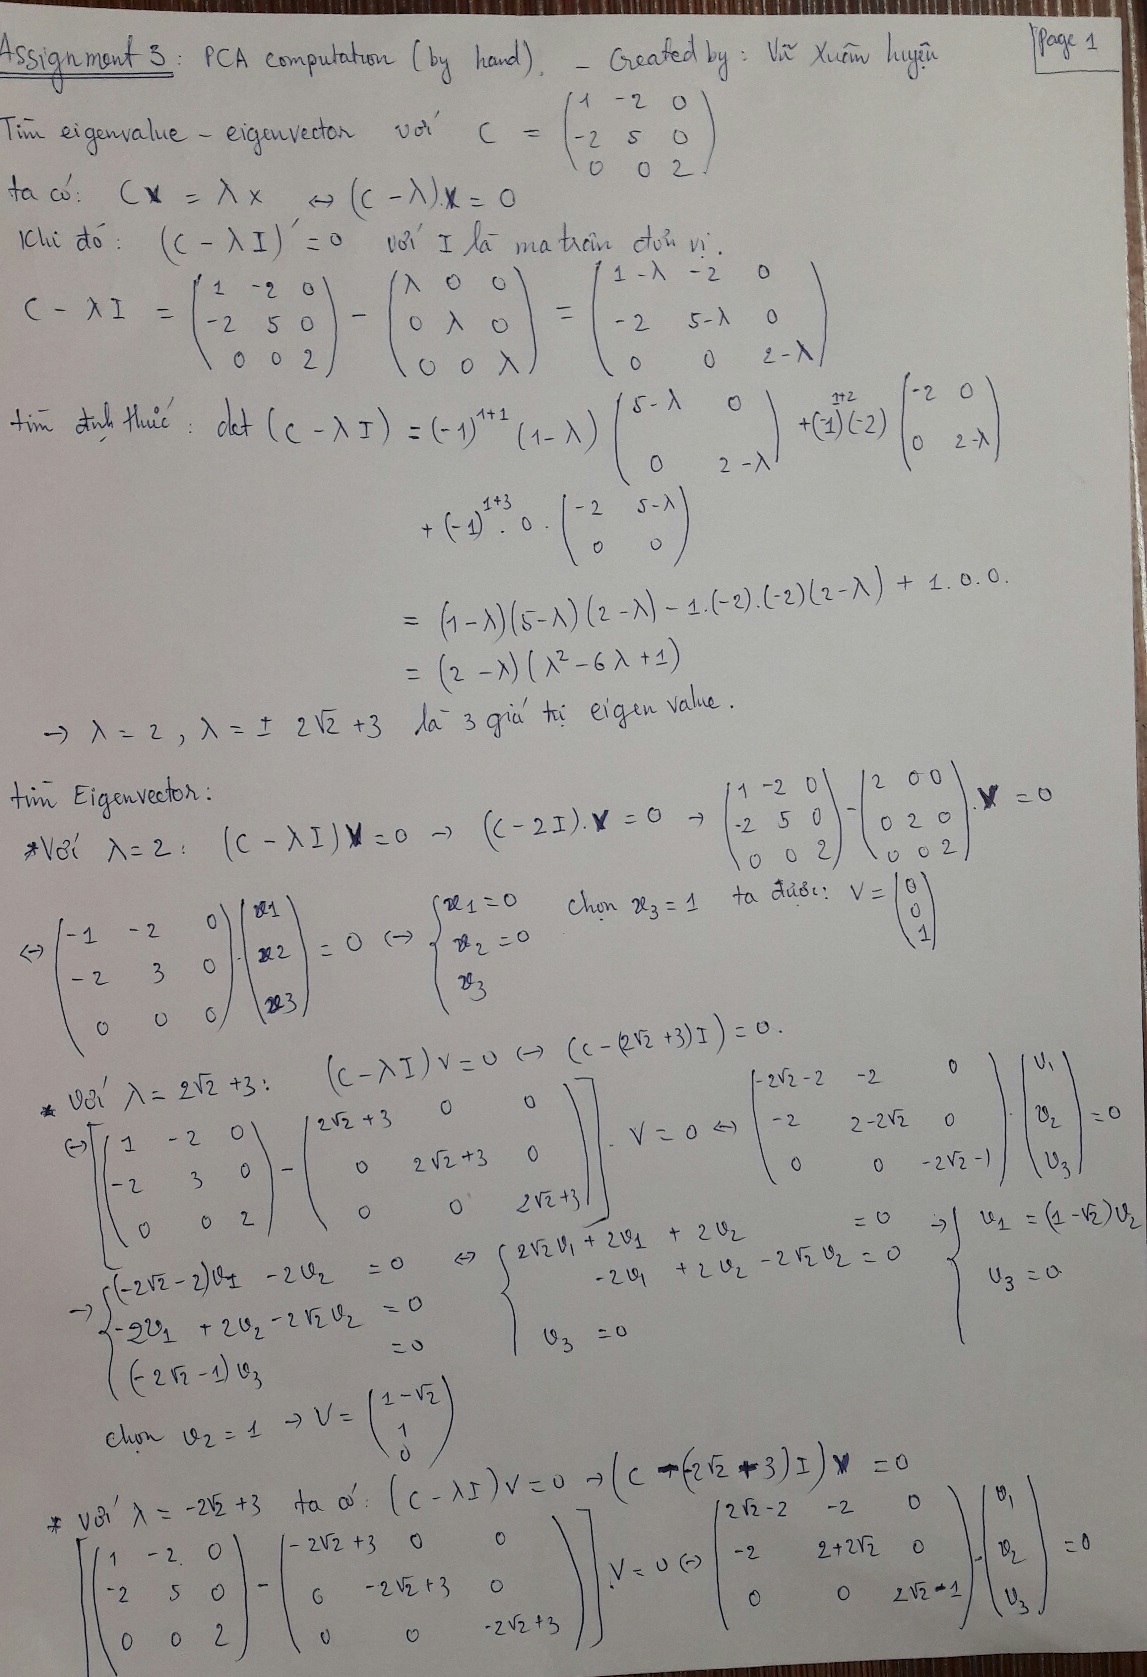 Assignment 3: PCA computation (by hand). - Created by: Vũ Xuân Luyện
Page 1
Tìm eigenvalue - eigenvector với C = (1 -2 0; -2 5 0; 0 0 2)
ta có: Cx = λx ↔ (C - λ).x = 0
Khi đó: (C - λI) = 0 với I là ma trận đơn vị.
C - λI = (1 -2 0; -2 5 0; 0 0 2) - (λ 0 0; 0 λ 0; 0 0 λ) = (1-λ -2 0; -2 5-λ 0; 0 0 2-λ)
tìm định thức: det (C - λI) = (-1)^1+1 (1-λ) (5-λ 0; 0 2-λ) + (-1)^1+2 (-2) (-2 0; 0 2-λ)
+ (-1)^1+3 . 0 . (-2 5-λ; 0 0)
= (1-λ)(5-λ)(2-λ) - 1.(-2).(-2)(2-λ) + 1.0.0.
= (2-λ)(λ² - 6λ + 1)
→ λ = 2, λ = ± 2√2 + 3 là 3 giá trị eigen value.
tìm Eigenvector:
* Với λ = 2: (C - λI)x = 0 → (C - 2I).x = 0 → (1 -2 0; -2 5 0; 0 0 2) - (2 0 0; 0 2 0; 0 0 2).x = 0
↔ (-1 -2 0; -2 3 0; 0 0 0).(x1; x2; x3) = 0 ↔ {x1 = 0; x2 = 0; x3 chọn x3 = 1 ta được: V = (0; 0; 1)
* Với λ = 2√2 + 3: (C - λI)v = 0 ↔ (C - (2√2 + 3)I) = 0.
↔ [(1 -2 0; -2 3 0; 0 0 2) - (2√2+3 0 0; 0 2√2+3 0; 0 0 2√2+3)].V = 0 ↔ (-2√2-2 -2 0; -2 2-2√2 0; 0 0 -2√2-1).(v1; v2; v3) = 0
→ {(-2√2-2)v1 - 2v2 = 0; -2v1 + 2v2 - 2√2v2 = 0; (-2√2-1)v3 = 0 ↔ {2√2v1 + 2v1 + 2v2 = 0; -2v1 + 2v2 - 2√2v2 = 0; v3 = 0 → {v1 = (1-√2)v2; v3 = 0
chọn v2 = 1 → V = (1-√2; 1; 0)
* Với λ = -2√2 + 3 ta có: (C - λI)v = 0 → (C - (-2√2 + 3)I)v = 0
[(1 -2 0; -2 5 0; 0 0 2) - (-2√2+3 0 0; 0 -2√2+3 0; 0 0 -2√2+3)].V = 0 ↔ (2√2-2 -2 0; -2 2+2√2 0; 0 0 2√2-1).(v1; v2; v3) = 0